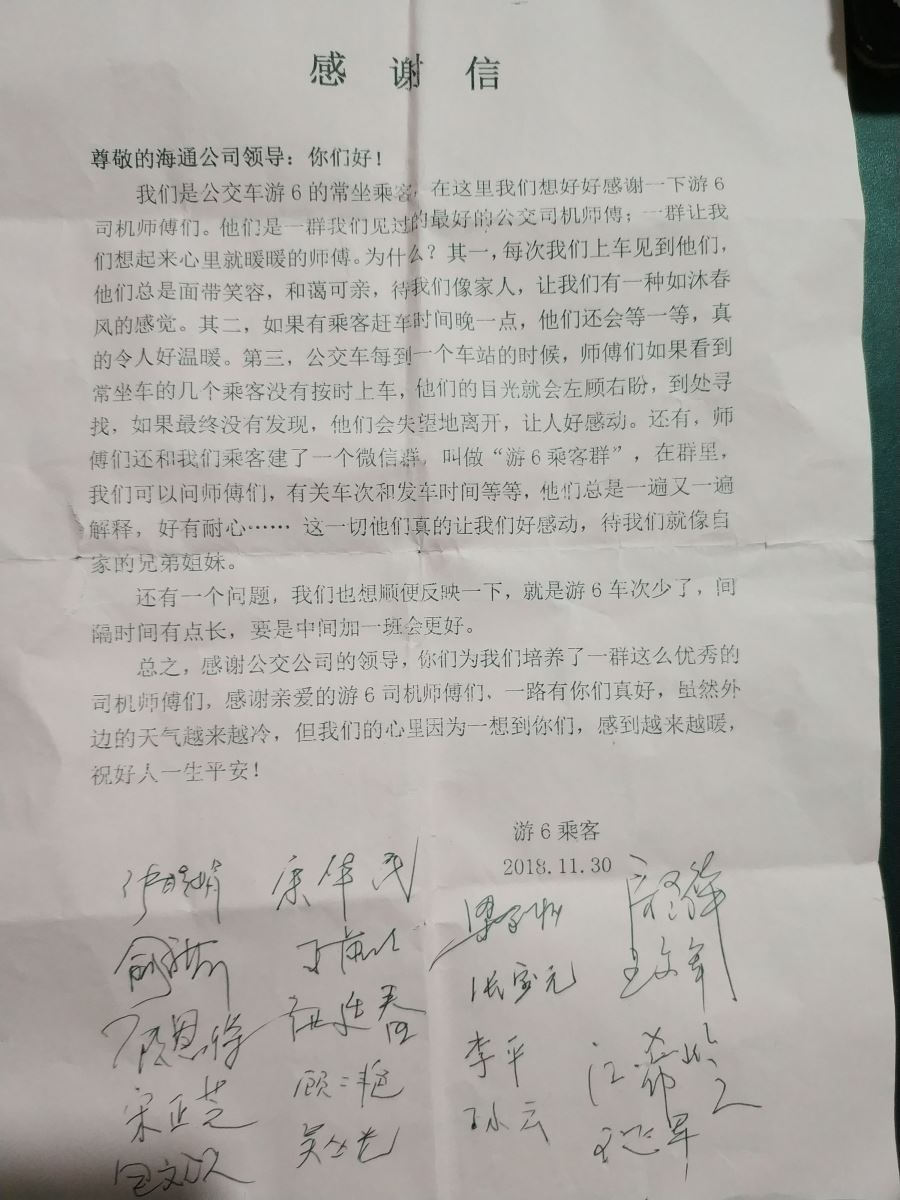 感谢信
尊敬的海通公司领导：你们好！
我们是公交车游6的常坐乘客，在这里我们想好好感谢一下游6
司机师傅们。他们是一群我们见过的最好的公交司机师傅；一群让我
们想起来心里就暖暖的师傅。为什么？其一，每次我们上车见到他们，
他们总是面带笑容，和蔼可亲，待我们像家人，让我们有一种如沐春
风的感觉。其二，如果有乘客赶车时间晚一点，他们还会等一等，真
的令人好温暖。第三，公交车每到一个车站的时候，师傅们如果看到
常坐车的几个乘客没有按时上车，他们的目光就会左顾右盼，到处寻
找，如果最终没有发现，他们会失望地离开，让人好感动。还有，师
傅们还和我们乘客建了一个微信群，叫做“游6乘客群”，在群里，
我们可以问师傅们，有关车次和发车时间等等，他们总是一遍又一遍
解释，好有耐心…… 这一切他们真的让我们好感动，待我们就像自
家的兄弟姐妹。
还有一个问题，我们也想顺便反映一下，就是游6车次少了，间
隔时间有点长，要是中间加一班会更好。
总之，感谢公交公司的领导，你们为我们培养了一群这么优秀的
司机师傅们，感谢亲爱的游6司机师傅们，一路有你们真好，虽然外
边的天气越来越冷，但我们的心里因为一想到你们，感到越来越暖，
祝好人一生平安！
游6乘客
2018.11.30
宋华民
张家元
李平
宋正芸
孙云